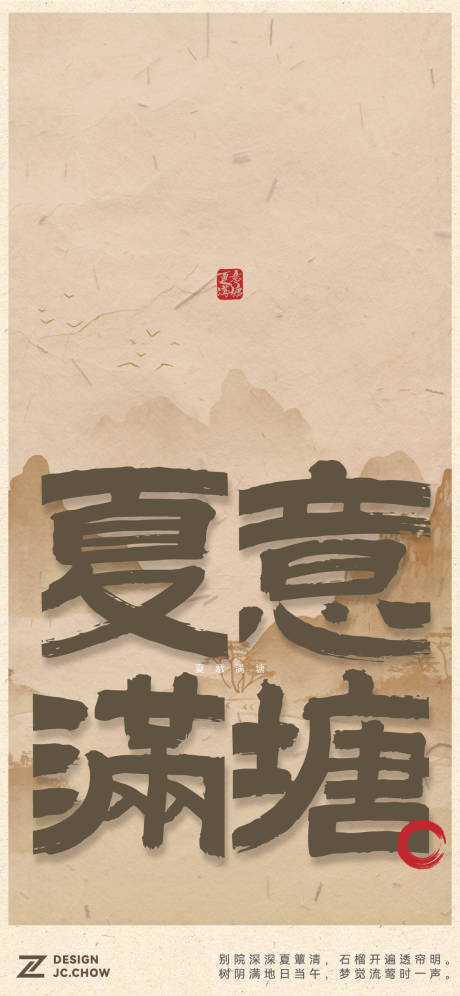 夏意
满塘
夏意满塘
夏意
滿塘
DESIGN
JC.CHOW
别院深深夏簟清，石榴开遍透帘明。
树阴满地日当午，梦觉流莺时一声。